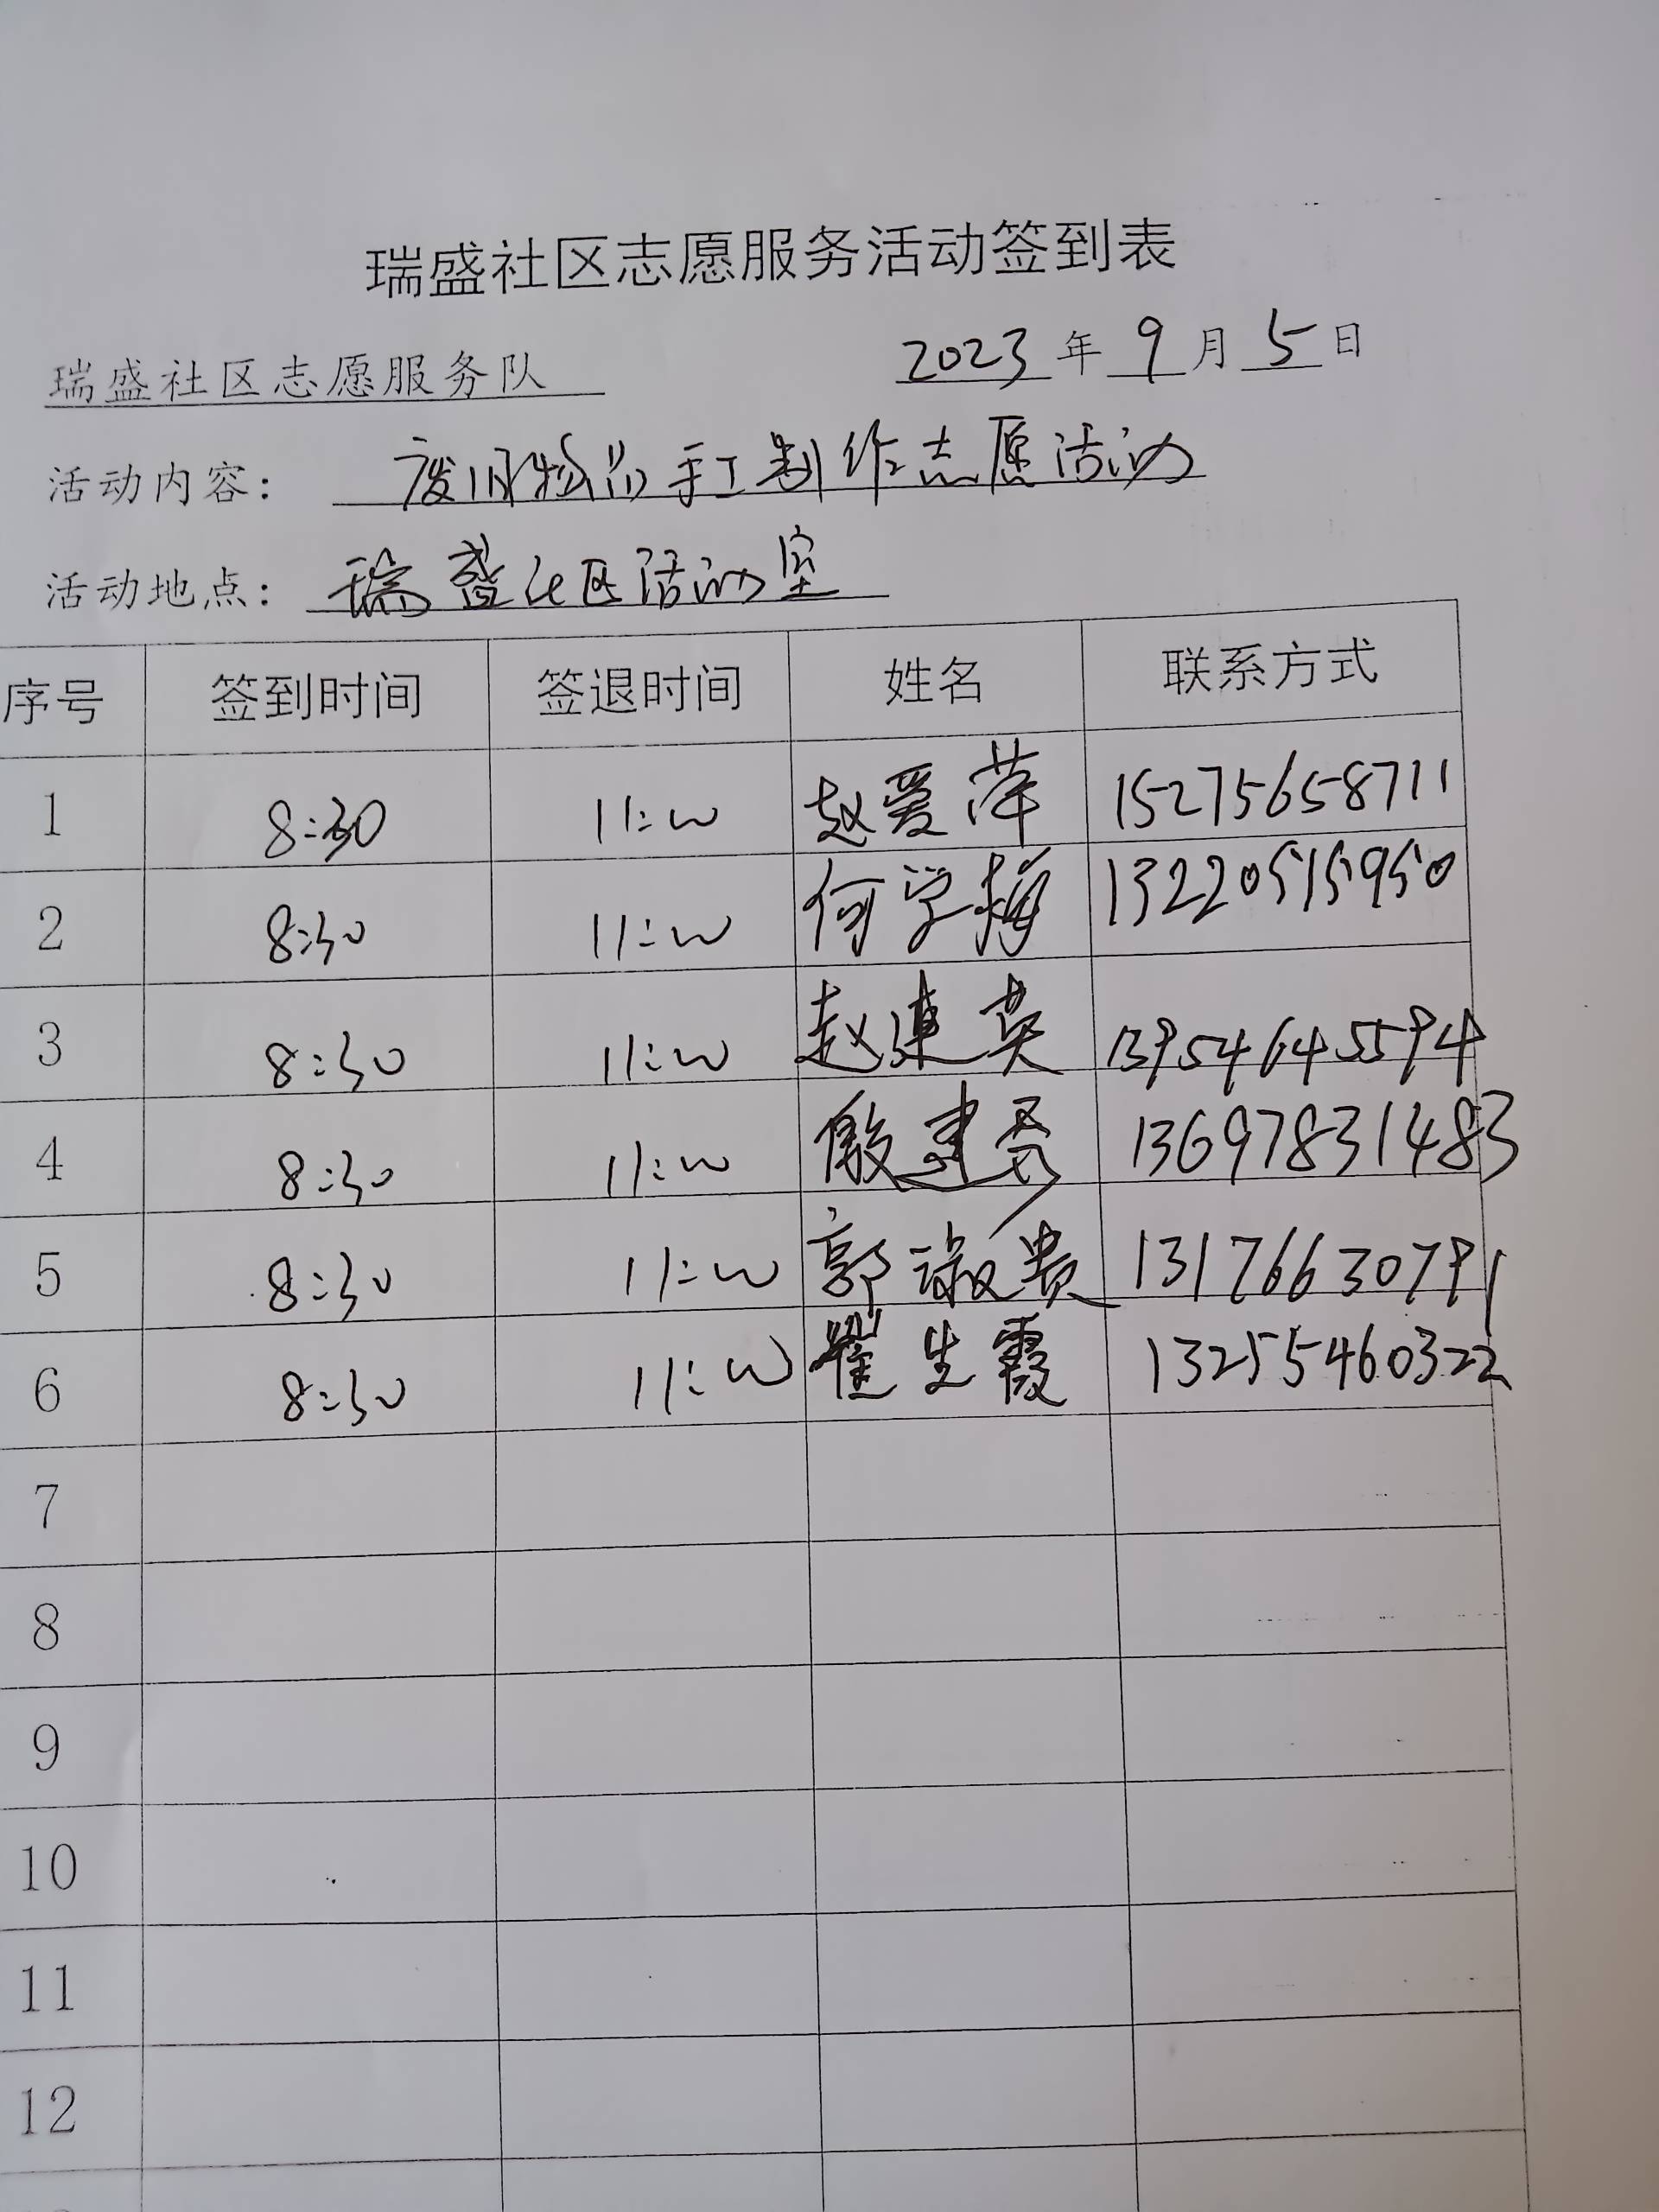 瑞盛社区志愿服务活动签到表
瑞盛社区志愿服务队 2023年9月5日
活动内容: 废旧物品手工制作志愿活动
活动地点: 瑞盛社区活动室
序号 签到时间 签退时间 姓名 联系方式
1 8:30 11:00 赵爱萍 15275658711
2 8:30 11:00 何学梅 13220515950
3 8:30 11:00 赵連英 13954645594
4 8:30 11:00 殷建秀 13697831483
5 8:30 11:00 郭淑贵 13176630791
6 8:30 11:00 崔生霞 13255460322
7
8
9
10
11
12